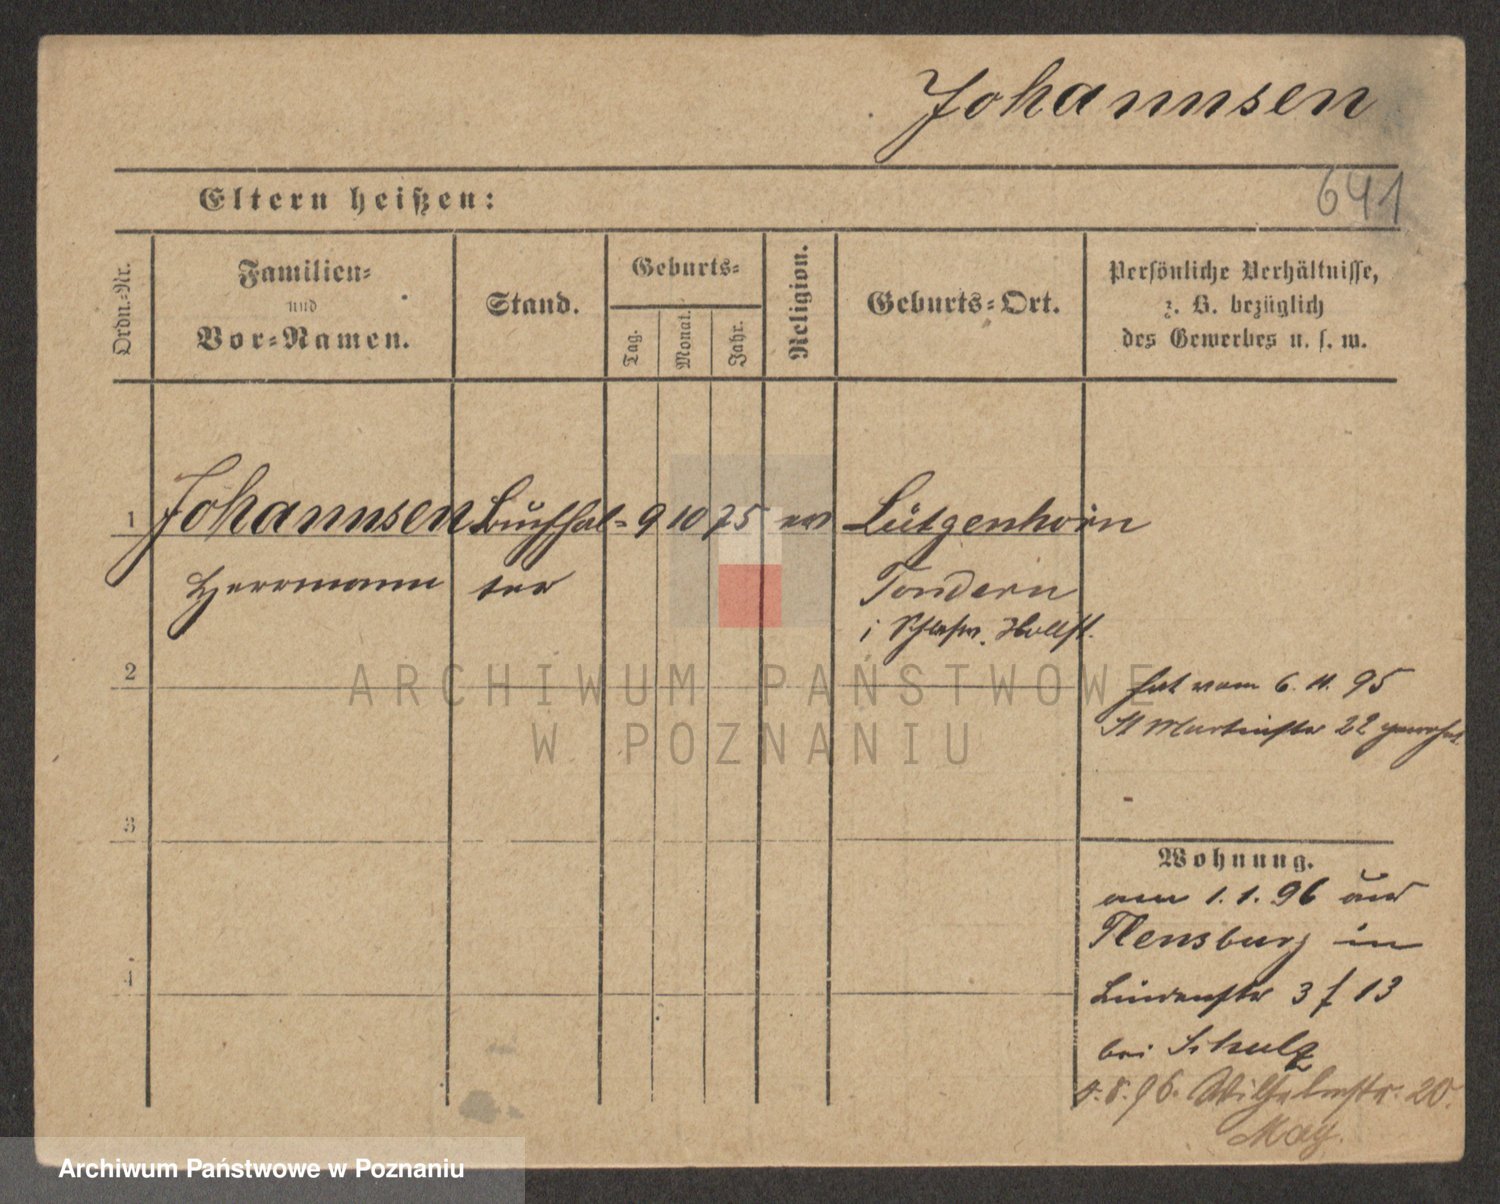 Johannsen
641
Eltern heißen:
Ordn.=Nr.
Familien=
und
Vor=Namen.
Stand.
Geburts=
Tag.
Monat.
Jahr.
Religion.
Geburts=Ort.
Persönliche Verhältnisse,
z. B. bezüglich
des Gewerbes u. s. w.
1 Johannsen Buchhal= 9 10 75 ev Lütgenhorn
Herrmann ter Tondern
i Schlesw. Hollst.
2
hat vom 6. 11. 95
St Martinstr 22 gewohnt
3
Wohnung.
am 1. 1. 96 aus
Flensburg in
4
Lindenstr 3 f 13
bei Schulz
8. 96. Wilhelmstr. 20.
May.
ARCHIWUM PAŃSTWOWE
W POZNANIU
Archiwum Państwowe w Poznaniu